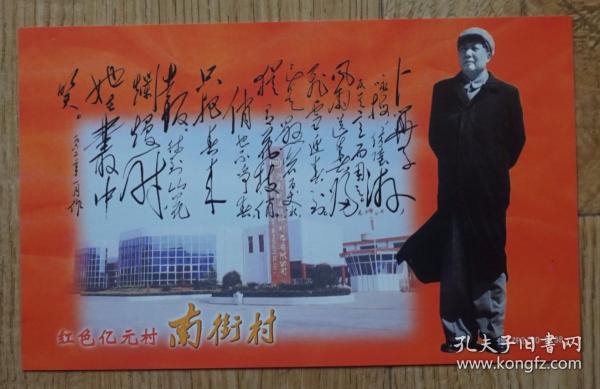 卜算子
咏梅
风雨送春归
飞雪迎春到
已是悬崖百丈冰
犹有花枝俏
俏也不争春
只把春来
报 待到山花
烂漫时
她在叢中
笑。
红色亿元村 南街村
孔夫子旧书网
www.kongfz.com